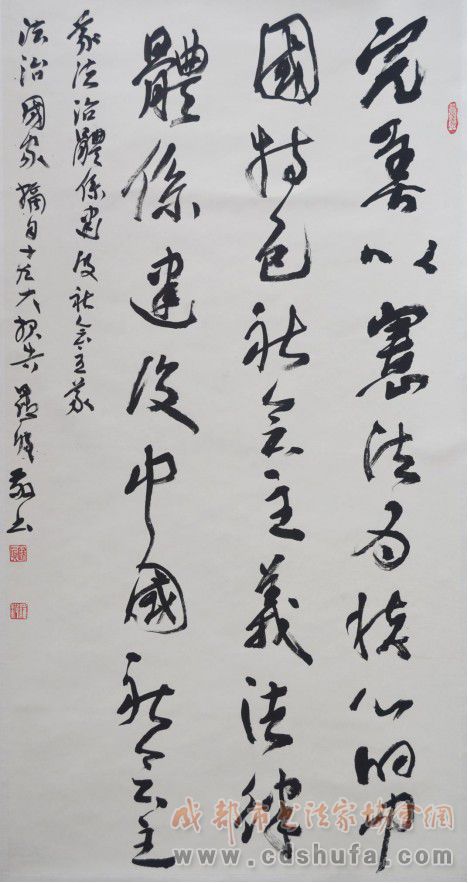 完善以憲法为核心的中
國特色社会主義法律
體係建设中國社会主
義法治體係建设社会主義
法治國家摘自十九大报告 敬书
成都市书法家协会网
www.cdshufa.com